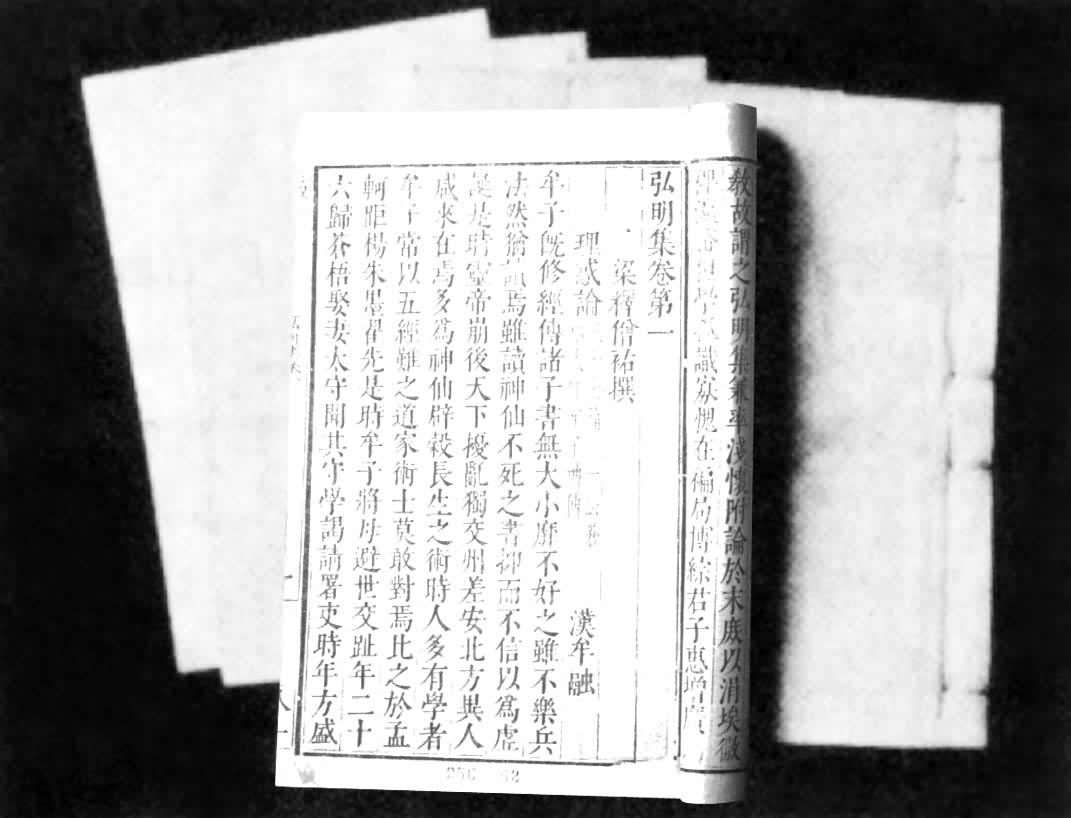 教故謂之弘明集兼率淺懷附論於末庶以涓埃微
識寡愧在偏局博綜君子惠增廣
弘明集卷第一
梁釋僧祐撰
理惑論 漢牟融
牟子既修經傳諸子書無大小靡不好之雖不樂兵
法然猶讀焉雖讀神仙不死之書抑而不信以爲虛
誕是時靈帝崩後天下擾亂獨交州差安北方異人
咸來在焉多爲神仙辟穀長生之術時人多有學者
牟子常以五經難之道家術士莫敢對焉比之於孟
軻距楊朱墨翟先是時牟子將母避世交趾年二十
六歸蒼梧娶妻太守聞其守學謁請署吏時年方盛